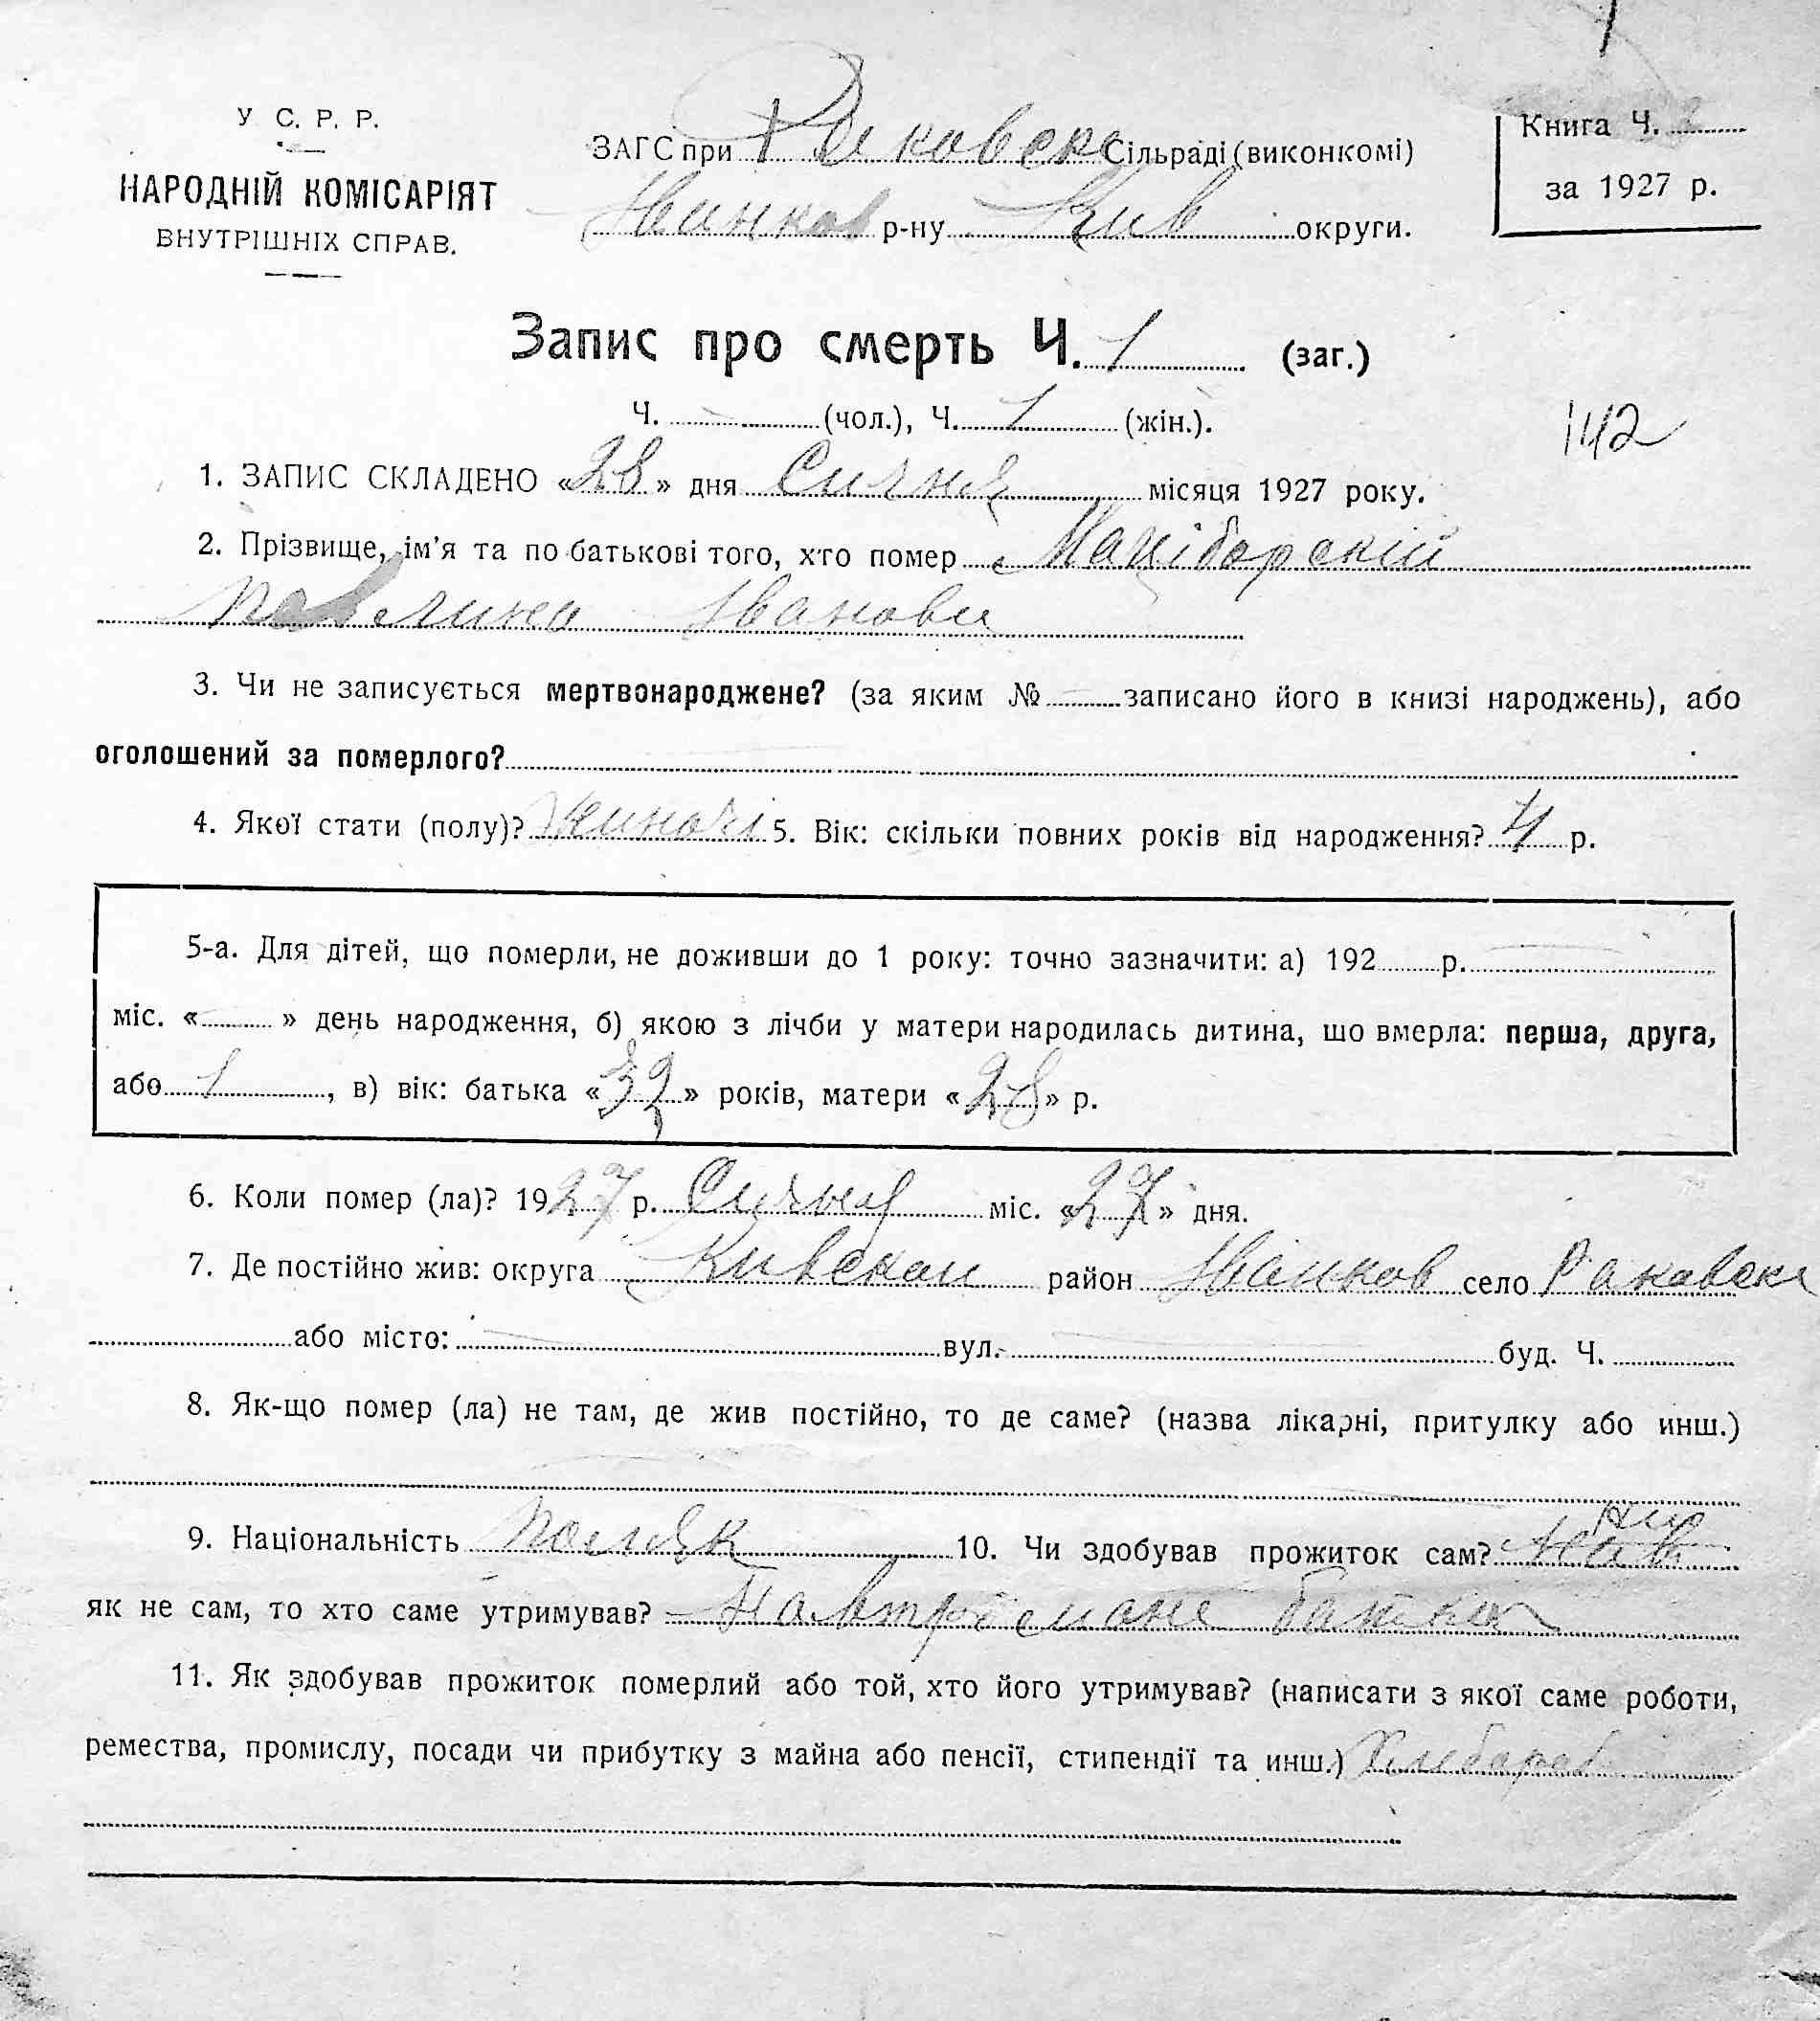 У С. Р. Р.
НАРОДНІЙ КОМІСАРІЯТ
ВНУТРІШНІХ СПРАВ.
ЗАГС при Раковске Сільраді (виконкомі)
Иванков р-ну Кив округи.
Книга Ч.
за 1927 р.
Запис про смерть Ч. 1 (заг.)
Ч. — (чол.), Ч. 1 (жін.).
142
1. ЗАПИС СКЛАДЕНО «28» дня Сичня місяця 1927 року.
2. Прізвище, ім'я та по батькові того, хто помер Маціборскій
Павлина Иванови
3. Чи не записується мертвонароджене? (за яким № — записано його в книзі народжень), або
оголошений за померлого?
4. Якої стати (полу)? жиночі 5. Вік: скільки повних років від народження? 4 р.
5-а. Для дітей, що померли, не доживши до 1 року: точно зазначити: а) 192 р. —
міс. « — » день народження, б) якою з лічби у матери народилась дитина, що вмерла: перша, друга,
або 1, в) вік: батька «32» років, матери «28» р.
6. Коли помер (ла)? 1927 р. Сичня міс. «27» дня.
7. Де постійно жив: округа Кивскои район Иванков село Раковске
або місто: — вул. — буд. Ч.
8. Як-що помер (ла) не там, де жив постійно, то де саме? (назва лікарні, притулку або инш.)
9. Національність поляк 10. Чи здобував прожиток сам?
як не сам, то хто саме утримував? На втримане батька
11. Як здобував прожиток померлий або той, хто його утримував? (написати з якої саме роботи,
ремества, промислу, посади чи прибутку з майна або пенсії, стипендії та инш.) Хлибороб